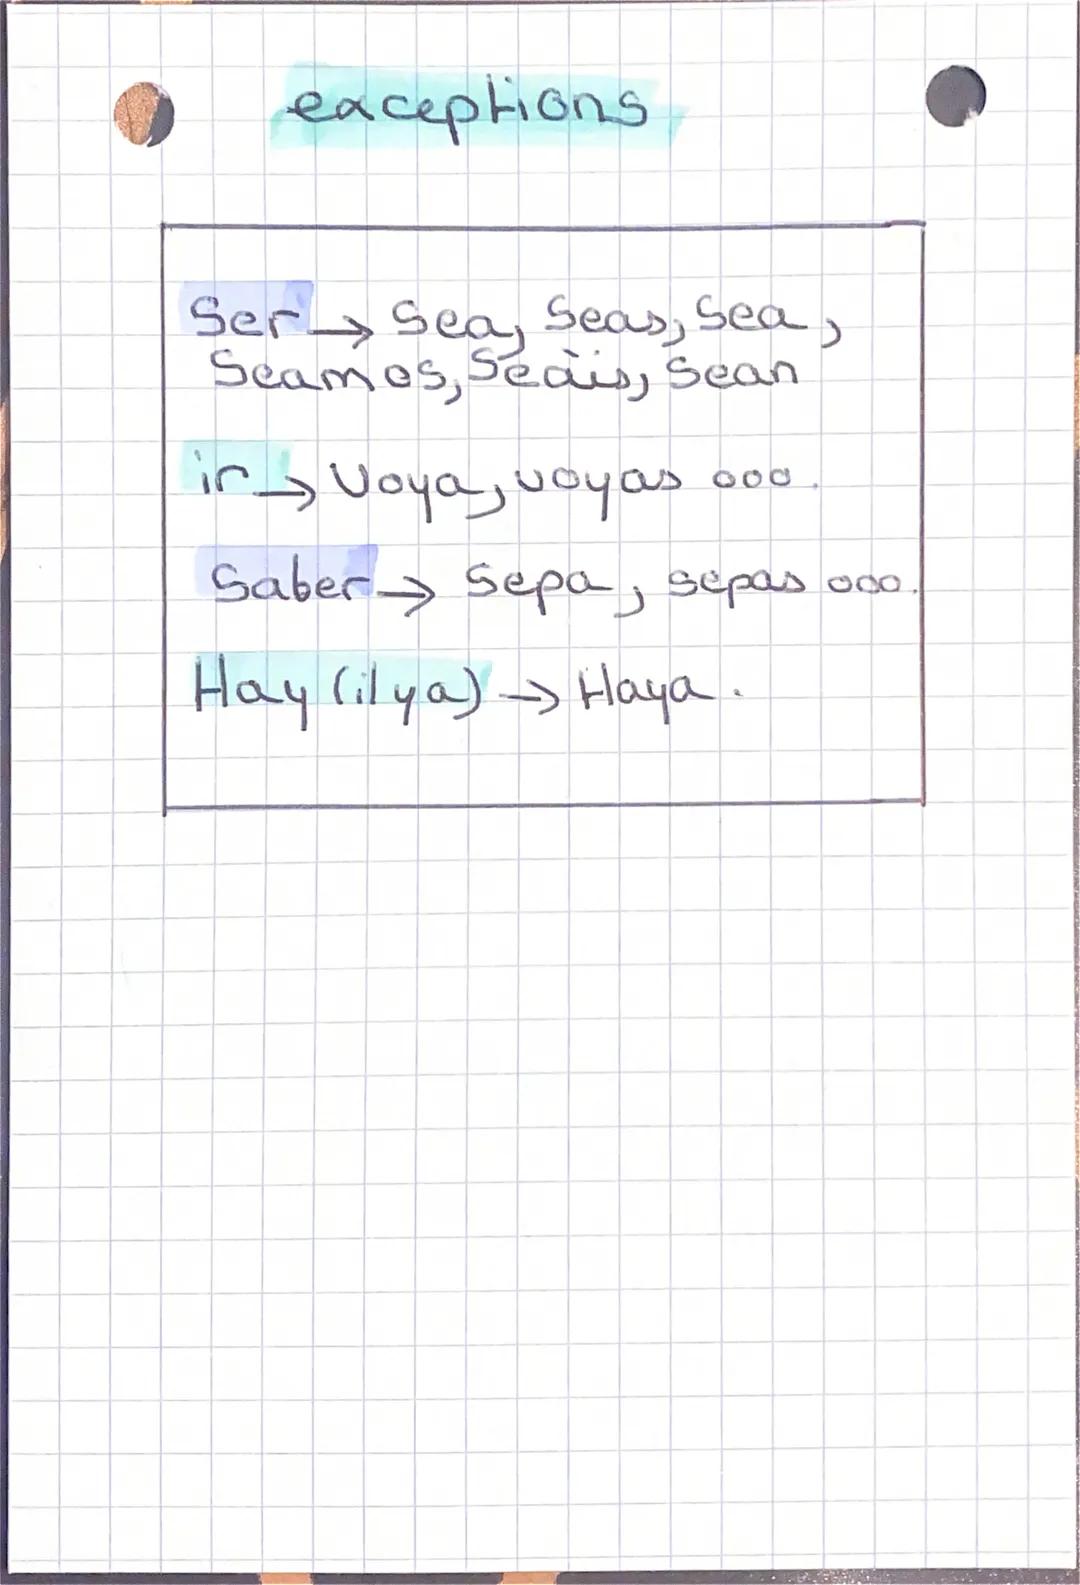 exceptions
Ser → Sea, Seas, Sea,
Seamos, Seàis, Sean
ir → Voya, voyas ooo.
Saber → Sepa, sepas ooo.
Hay (il ya) → Haya.